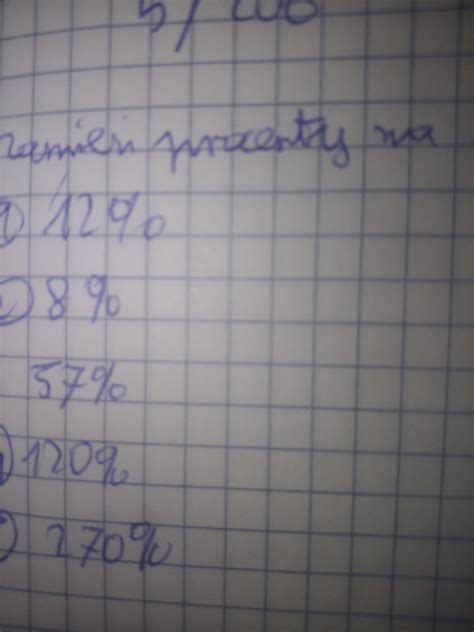 5/200
zamień procenty na
1) 12%
8%
57%
120%
270%